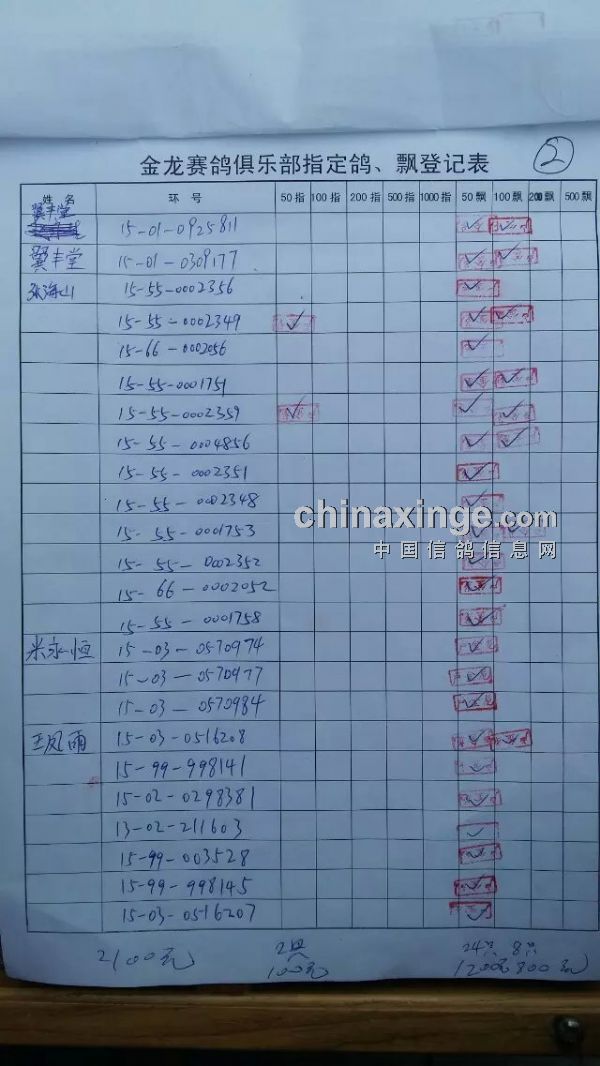 金龙赛鸽俱乐部指定鸽、飘登记表 2
姓 名 环 号 50 指 100 指 200 指 500 指 1000 指 50 飘 100 飘 200 飘 500 飘
翼丰堂 15-01-0925811 ✓ ✓
翼丰堂 15-01-0309177 ✓ ✓
张海山 15-55-0002356 ✓
15-55-0002349 ✓ ✓ ✓
15-66-0002056 ✓
15-55-0001751 ✓ ✓
15-55-0002359 ✓ ✓ ✓
15-55-0004856 ✓ ✓
15-55-0002351 ✓
15-55-0002348 ✓
15-55-0001753 ✓ ✓
15-55-0002352 ✓
15-66-0002052 ✓
15-55-0001758 ✓
米永恒 15-03-0570974 ✓
15-03-0570977 ✓
15-03-0570984 ✓
王凤雨 15-03-0516208 ✓ ✓
15-99-998141 ✓
15-02-0298381 ✓
13-02-211603 ✓
15-99-003528 ✓
15-99-998145 ✓
15-03-0516207 ✓
2100元 2只 24只 8只
100元 1200元 800元
chinaxinge.com
中国信鸽信息网